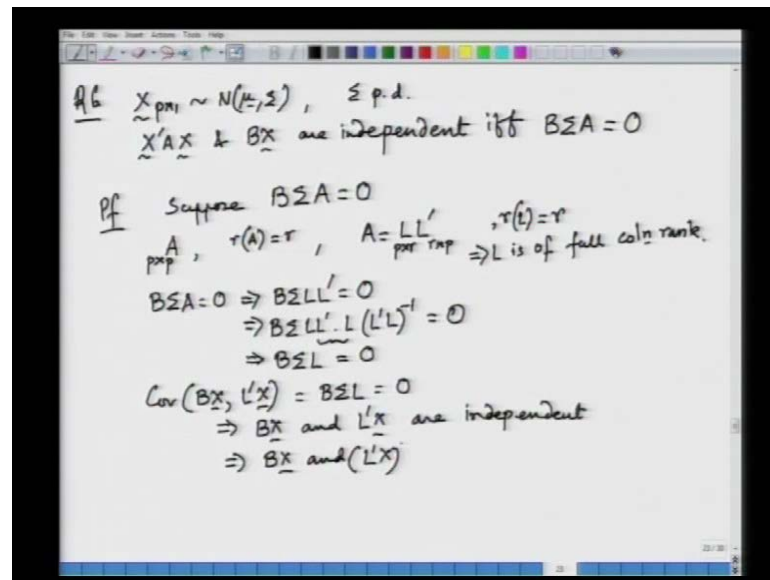 File Edit View Insert Actions Tools Help
R6 X p×1 ~ N(μ, Σ), Σ p.d.
X'AX & BX are independent iff BΣA = 0
Pf Suppose BΣA = 0
A p×p, r(A) = r, A = LL' p×r r×p, r(L) = r ⇒ L is of full coln rank.
BΣA = 0 ⇒ BΣLL' = 0
⇒ BΣLL'.L(L'L)⁻¹ = 0
⇒ BΣL = 0
Cov(BX, L'X) = BΣL = 0
⇒ BX and L'X are independent
⇒ BX and (L'X)'
23/30
23